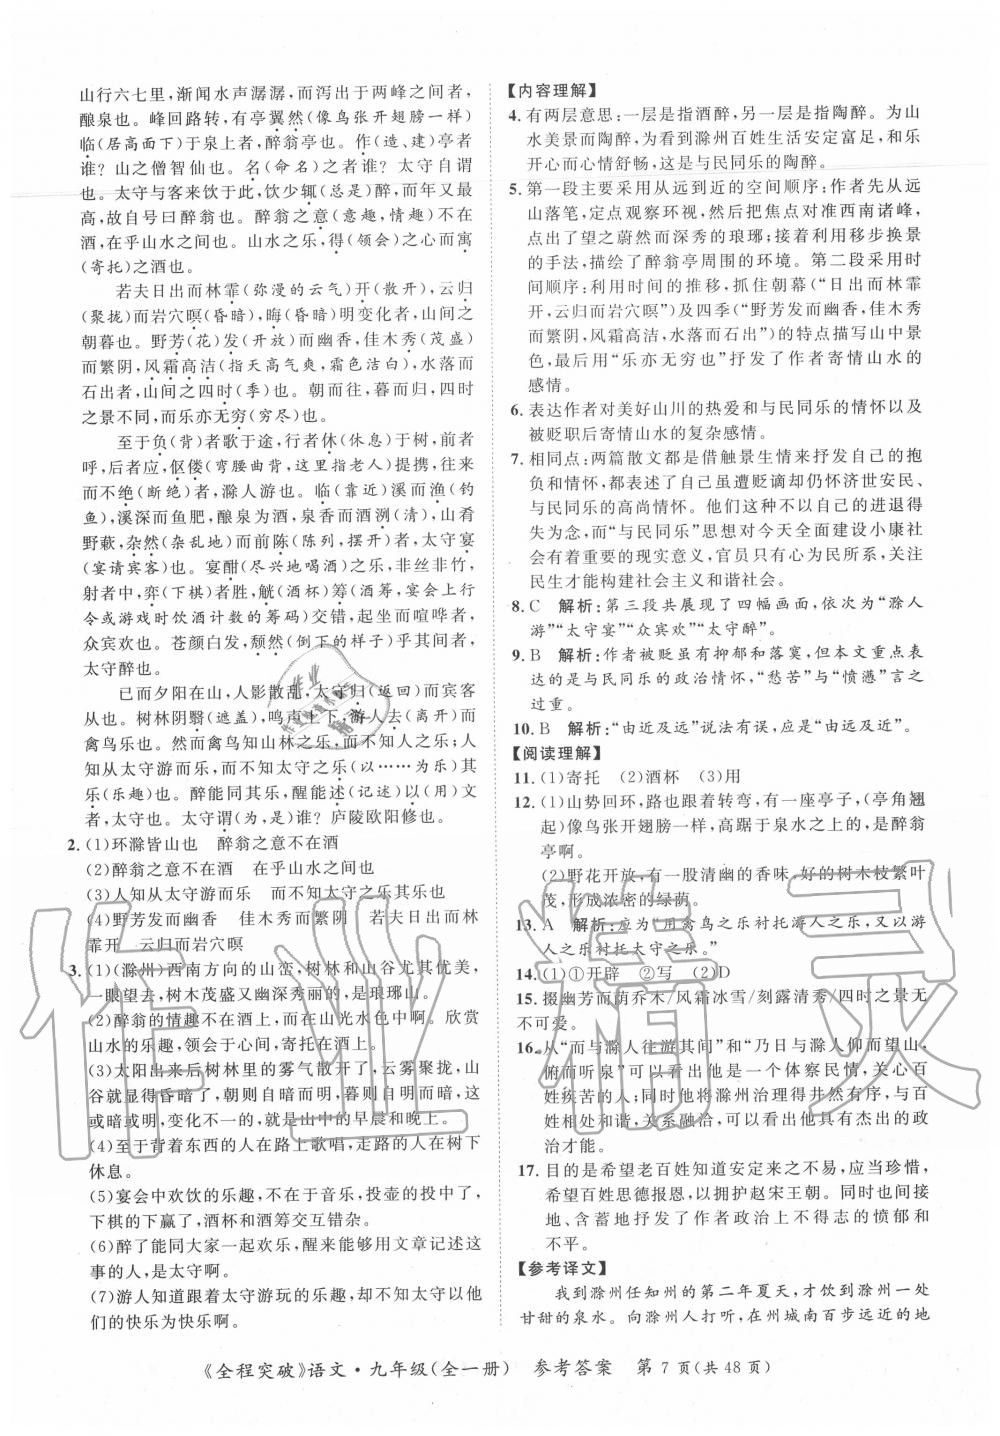 山行六七里，渐闻水声潺潺，而泻出于两峰之间者，
酿泉也。峰回路转，有亭翼然(像鸟张开翅膀一样)
临(居高面下)于泉上者，醉翁亭也。作(造、建)亭者
谁？山之僧智仙也。名(命名)之者谁？太守自谓
也。太守与客来饮于此，饮少辄(总是)醉，而年又最
高，故自号曰醉翁也。醉翁之意(意趣，情趣)不在
酒，在乎山水之间也。山水之乐，得(领会)之心而寓
(寄托)之酒也。
若夫日出而林霏(弥漫的云气)开(散开)，云归
(聚拢)而岩穴暝(昏暗)，晦(昏暗)明变化者，山间之
朝暮也。野芳(花)发(开放)而幽香，佳木秀(茂盛)
而繁阴，风霜高洁(指天高气爽，霜色洁白)，水落而
石出者，山间之四时(季)也。朝而往，暮而归，四时
之景不同，而乐亦无穷(穷尽)也。
至于负(背)者歌于途，行者休(休息)于树，前者
呼，后者应，伛偻(弯腰曲背，这里指老人)提携，往来
而不绝(断绝)者，滁人游也。临(靠近)溪而渔(钓
鱼)，溪深而鱼肥，酿泉为酒，泉香而酒洌(清)，山肴
野蔌，杂然(杂乱地)而前陈(陈列，摆开)者，太守宴
(宴请宾客)也。宴酣(尽兴地喝酒)之乐，非丝非竹，
射者中，弈(下棋)者胜，觥(酒杯)筹(行酒
令或游戏时饮酒计数的筹码)交错，起坐而喧哗者，
众宾欢也。苍颜白发，颓然(倒下的样子)乎其间者，
太守醉也。
已而夕阳在山，人影散乱，太守归(返回)而宾客
从也。树林阴翳(遮盖)，鸣声上下，游人去(离开)而
禽鸟乐也。然而禽鸟知山林之乐，而不知人之乐；
人知从太守游而乐，而不知太守之乐(以……为乐)其
乐(乐趣)也。醉能同其乐，醒能述(记述)以(用)文
者，太守也。太守谓(为，是)谁？庐陵欧阳修也。
2. (1)环滁皆山也　醉翁之意不在酒
(2)醉翁之意不在酒　在乎山水之间也
(3)人知从太守游而乐　而不知太守之乐其乐也
(4)野芳发而幽香　佳木秀而繁阴　若夫日出而林
霏开　云归而岩穴暝
3. (1)(滁州)西南方向的山峦，树林和山谷尤其优美，
一眼望去，树木茂盛又幽深秀丽的，是琅琊山。
(2)醉翁的情趣不在酒上，而在山光水色中啊。欣赏
山水的乐趣，领会于心间，寄托在酒上。
(3)太阳出来后树林里的雾气散开了，云雾聚拢，山
谷就显得昏暗了，朝则自暗而明，暮则自明而暗，这
或暗或明，变化不一的，是山中的早晨和晚上。
(4)至于背着东西的人在路上歌唱，走路的人在树下
休息。
(5)宴会中欢饮的乐趣，不在于音乐，投壶的投中了，
下棋的下赢了，酒杯和酒筹交互错杂。
(6)醉了能同大家一起欢乐，醒来能够用文章记述这
事的人，是太守啊。
(7)游人知道跟着太守游玩的乐趣，却不知太守以他
们的快乐为快乐啊。
【内容理解】
4. 有两层意思：一层是指酒醉，另一层是指陶醉。为山
水美景而陶醉，为看到滁州百姓生活安定富足，和乐
开心而心情舒畅，这是与民同乐的陶醉。
5. 第一段主要采用从远到近的空间顺序：作者先从远
山落笔，定点观察环视，然后把焦点对准西南诸峰，
点出了望之蔚然而深秀的琅琊；接着利用移步换景
的手法，描绘了醉翁亭周围的环境。第二段采用时
间顺序：利用时间的推移，抓住朝暮(“日出而林霏
开，云归而岩穴暝”)及四季(“野芳发而幽香，佳木秀
而繁阴，风霜高洁，水落而石出”)的特点描写山中景
色，最后以“乐亦无穷也”抒发了作者寄情山水的
感情。
6. 表达作者对美好山川的热爱和与民同乐的情怀以及
被贬职后寄情山水的复杂感情。
7. 相同点：两篇散文都是借触景生情来抒发自己的抱
负和情怀，都表述了自己虽遭贬谪却仍怀济世安民、
与民同乐的高尚情怀。他们这种不以自己的进退得
失为念，而“与民同乐”思想对今天全面建设小康社
会有着重要的现实意义，官员只有心为民所系，关注
民生才能构建社会主义和谐社会。
8. C　解析：第三段共展现了四幅画面，依次为“滁人
游”“太守宴”“众宾欢”“太守醉”。
9. B　解析：作者被贬虽有抑郁和落寞，但本文重点表
达的是与民同乐的政治情怀，“愁苦”与“愤懑”言之
过重。
10. B　解析：“由近及远”说法有误，应是“由远及近”。
【阅读理解】
11. (1)寄托　(2)酒杯　(3)用
12. (1)山势回环，路也跟着转弯，有一座亭子，(亭角翘
起)像鸟张开翅膀一样，高踞于泉水之上的，是醉翁
亭啊。
(2)野花开放，有一股清幽的香味，好的树木枝繁叶
茂，形成浓密的绿荫。
13. A　解析：应为“用禽鸟之乐衬托游人之乐，又以游
人之乐衬托太守之乐。”
14. (1)①开辟　②写　(2)D
15. 掇幽芳而荫乔木/风霜冰雪/刻露清秀/四时之景无
不可爱。
16. 从“而与滁人往游其间”和“乃日与滁人仰而望山，
俯而听泉”可以看出他是一个体察民情，关心百
姓疾苦的人；同时他将滁州治理得井然有序，与百
姓相处和谐，关系融洽，可以看出他具有出色的政
治才能。
17. 目的是希望老百姓知道安定来之不易，应当珍惜，
希望百姓思德报恩，以拥护赵宋王朝。同时也间接
地、含蓄地抒发了作者政治上不得志的愤郁和
不平。
【参考译文】
我到滁州任知州的第二年夏天，才饮到滁州一处
甘甜的泉水。向滁州人打听，在州城南百步远近的地
《全程突破》语文·九年级(全一册)　参考答案　第 7 页(共 48 页)
作业精灵